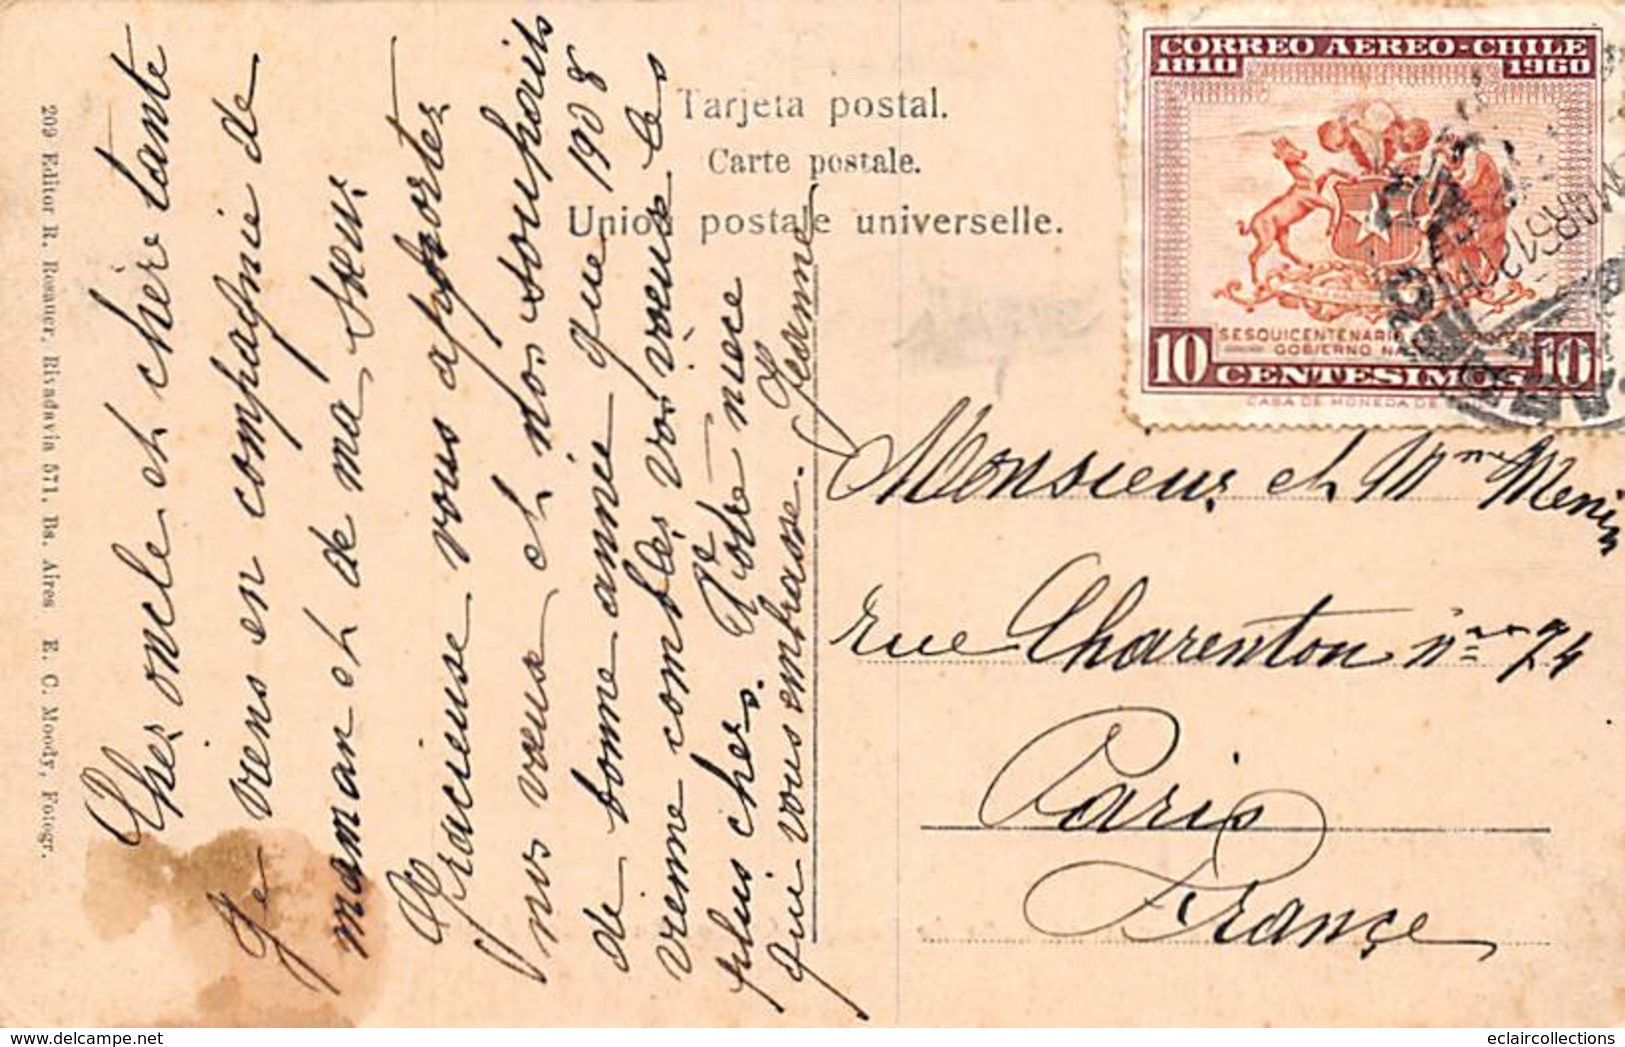 Tarjeta postal.
Carte postale.
Union postale universelle.
CORREO AEREO-CHILE
1810 1960
SESQUICENTENARIO
GOBIERNO NA
10 CENTESIMOS 10
CASA DE MONEDA DE
Cher oncle et chère tante
Je viens en compagnie de
maman et de ma soeur
Gracieuse vous apporter
nos voeux et nos souhaits
de bonne année que 1908
vienne comblés vos voeux les
plus chers. Votre niece
qui vous embrasse. Jeanne
Monsieur et Mme Menin
rue Charenton nro 74
Paris
France
209 Editor R. Rosauer, Rivadavia 571, Bs. Aires. E. C. Moody, Fotogr.
eclaircollections